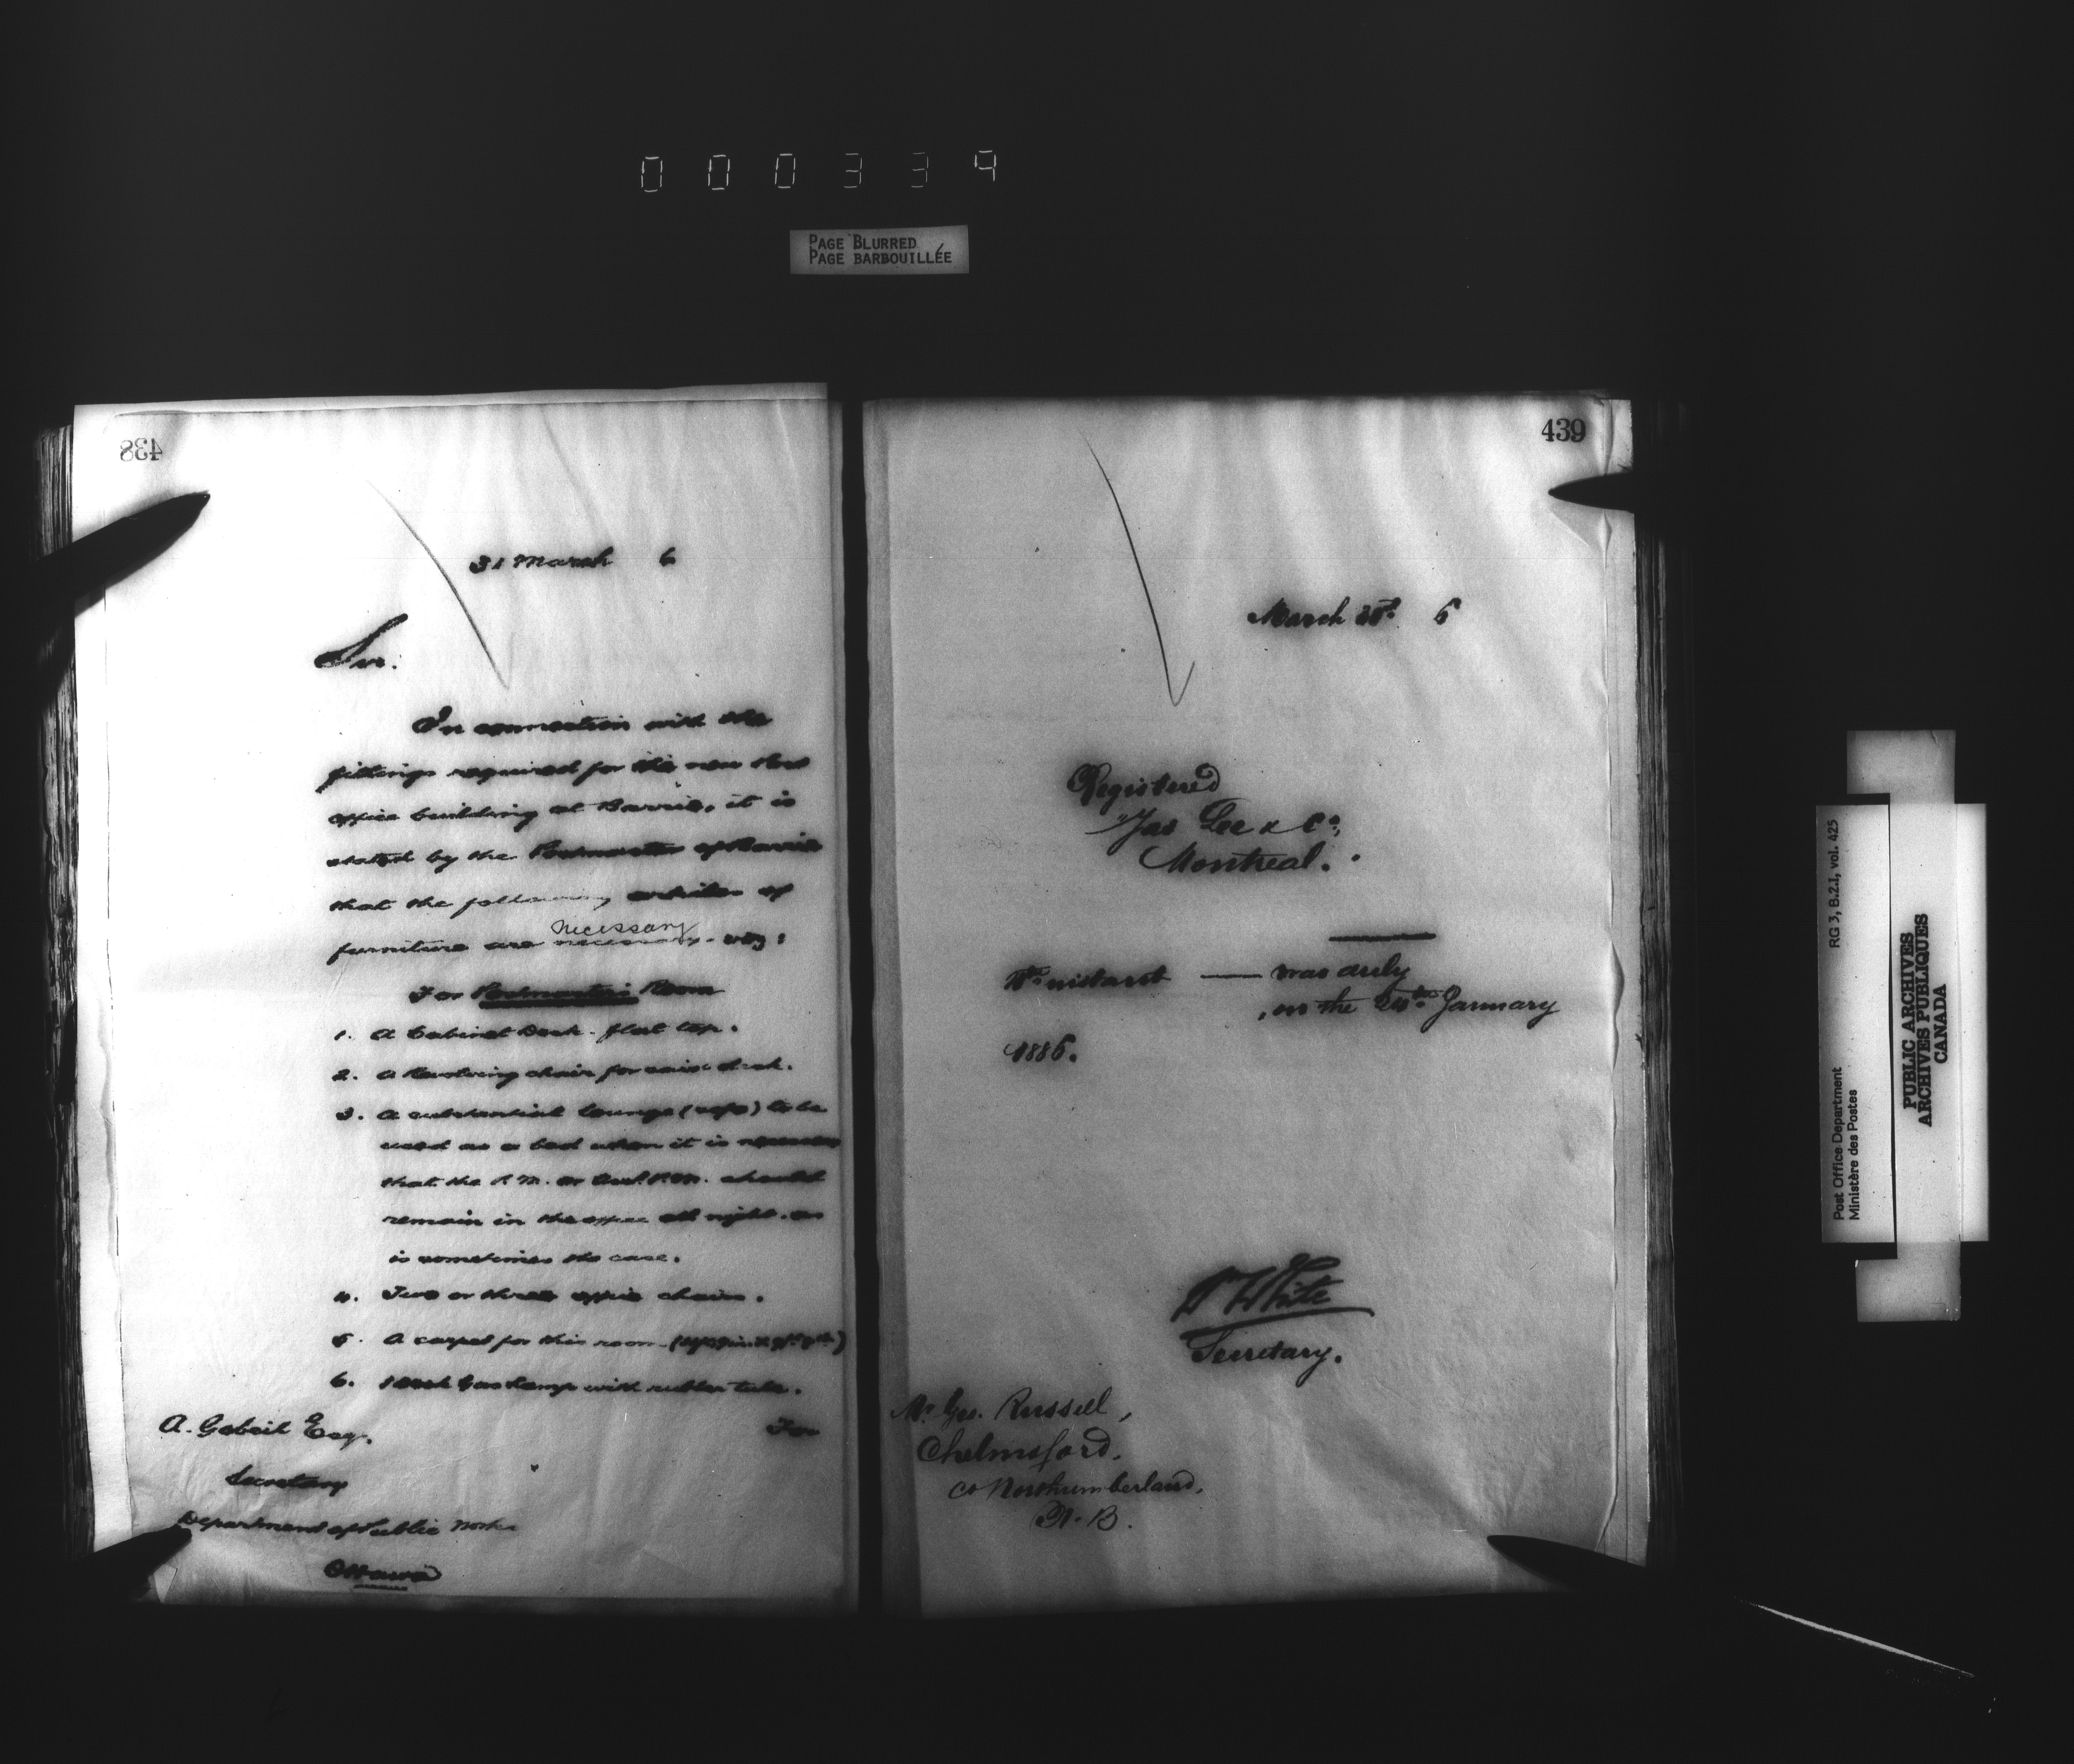 000339
PAGE BLURRED
PAGE BARBOUILLÉE
438
31 March 6
Sir.
In connection with the
fittings required for the new Post
office building at Barrie, it is
stated by the Postmaster of Barrie
that the following articles of
necessary
furniture are necessary. viz:
For Postmaster's Room
1. A Cabinet Desk - flat top.
2. A Revolving chair for said desk.
3. A substantial lounge (sofa) to be
used as a bed when it is necessary
that the P.M. or Asst. P.M. should
remain in the office all night. as
is sometimes the case.
4. Two or three office chairs.
5. A carpet for this room
6. 1 Desk Gas Lamp with rubber tube.
For
A. Gobeil Esq.
Secretary
Department of Public Works
Ottawa
439
March 6
Registered
Jas Lee & Co,
Montreal.
instant — was duly
on the January
1886.
W White
Secretary.
Mr Geo. Russell,
Chelmsford.
Co Northumberland,
N.B.
Post Office Department
Ministère des Postes
RG 3, B.2.1, vol. 425
PUBLIC ARCHIVES
ARCHIVES PUBLIQUES
CANADA